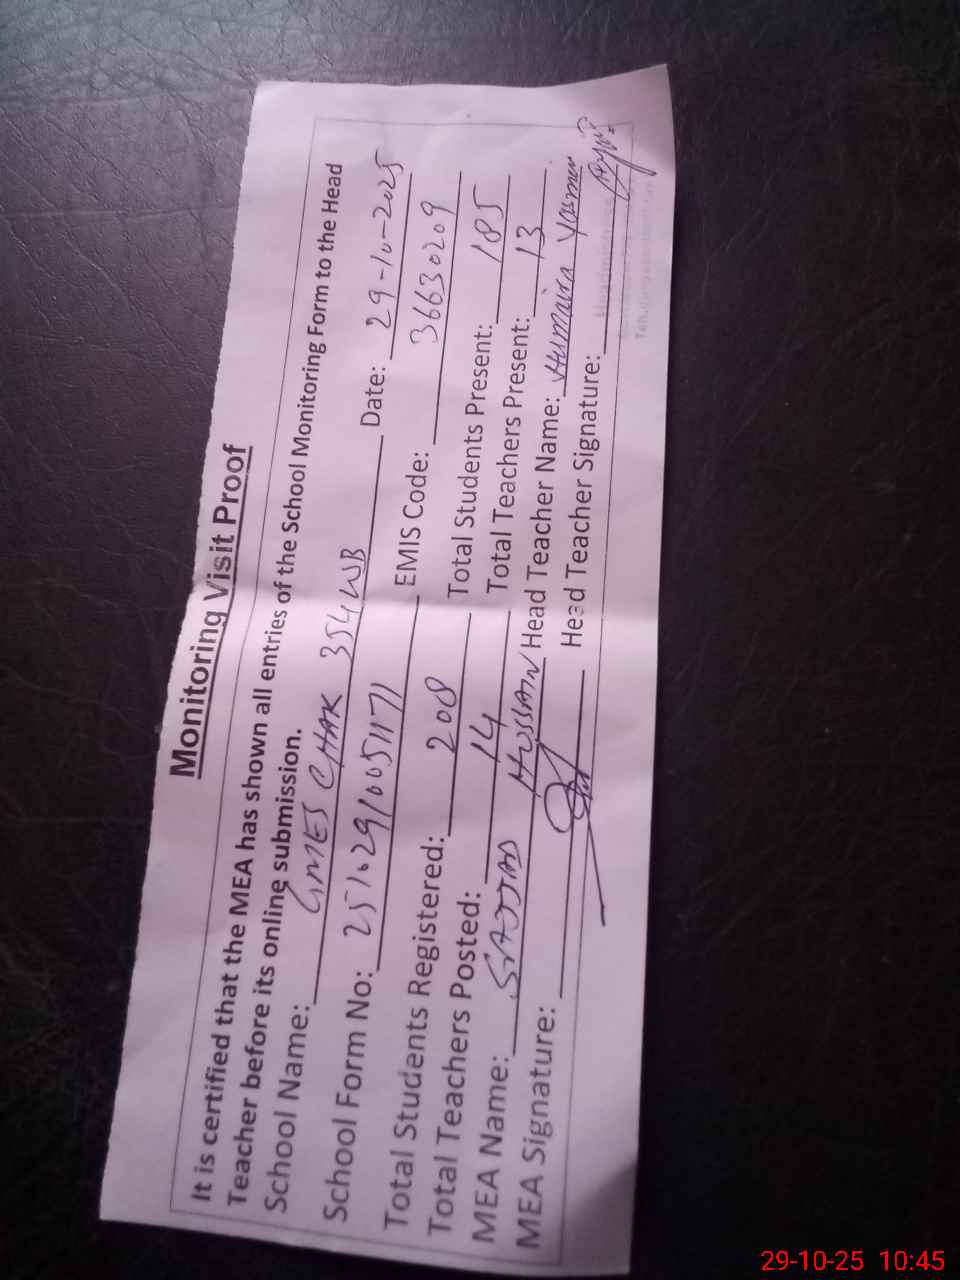 Monitoring Visit Proof
It is certified that the MEA has shown all entries of the School Monitoring Form to the Head
Teacher before its online submission.
School Name: GMES CHAK 354 WB Date: 29-10-2025
School Form No: 25102910051171 EMIS Code: 36630209
Total Students Registered: 208 Total Students Present: 185
Total Teachers Posted: 14 Total Teachers Present: 13
MEA Name: SAJJAD HUSSAIN Head Teacher Name: Humaira Yasmin
MEA Signature: Head Teacher Signature:
Headmistress
29-10-25 10:45